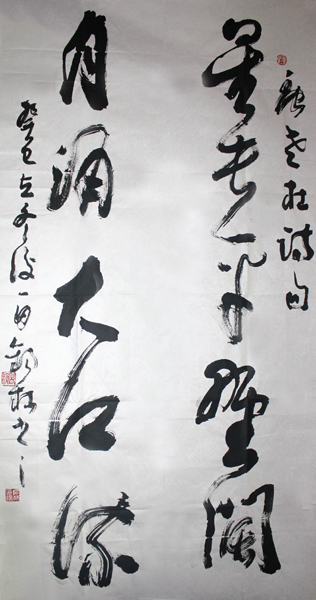 老杜詩句
星垂平野闊
月涌大江流
癸巳立冬後一日